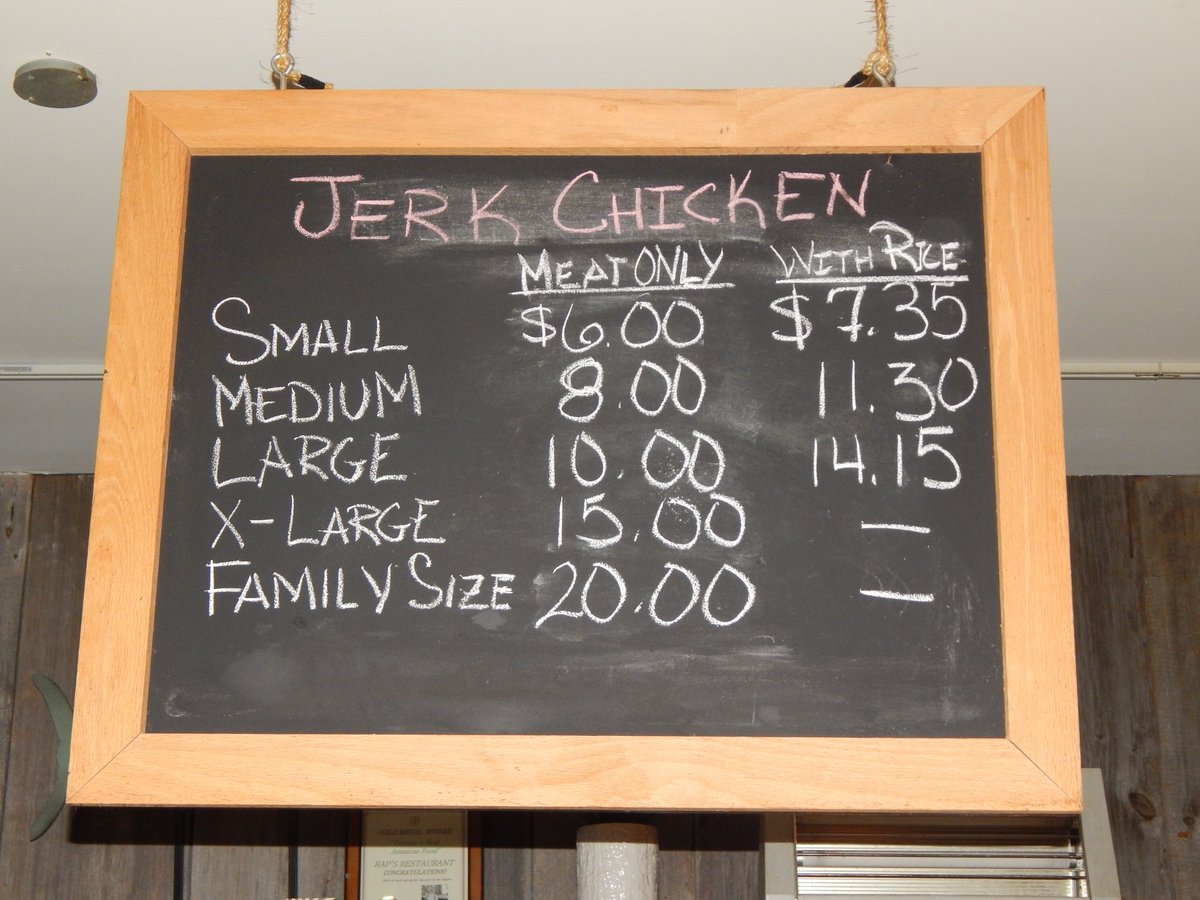 JERK CHICKEN
MEAT ONLY WITH RICE
SMALL $6.00 $7.35
MEDIUM 8.00 11.30
LARGE 10.00 14.15
X-LARGE 15.00 —
FAMILY SIZE 20.00 —
GOLD MEDAL WINNER
Jamaican Food
RAP'S RESTAURANT
CONGRATULATIONS!